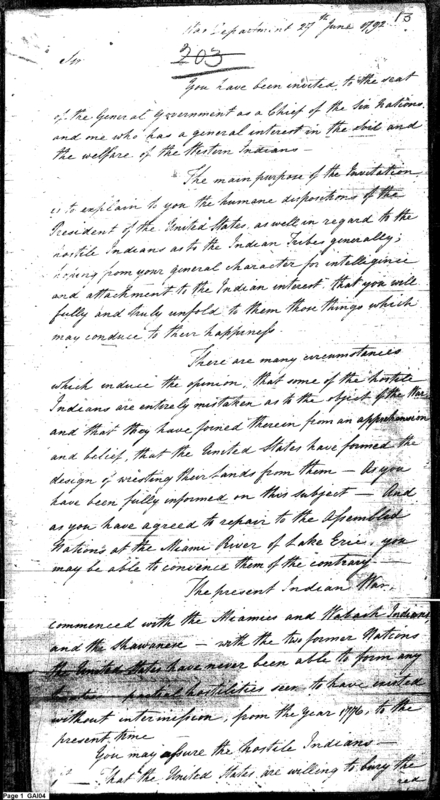 War Department 27th June 1792 13
203
Sir
You have been invited to the seat
of the General Government as a Chief of the Six Nations
and one who has a general interest in the soil and
the welfare of the Western Indians —
The main purpose of the Invitation,
is to explain to you the humane dispositions of the
President of the United States, as well in regard to the
hostile Indians as to the Indian Tribes generally;
hoping from your general character for intelligence
and attachment to the Indian interest, that you will
fully and truly unfold to them those things which
may conduce to their happiness.
There are many circumstances
which induce the opinion, that some of the hostile
Indians are entirely mistaken as to the object of the War
and that they have joined therein from an apprehension
and belief, that the United States have formed the
design of wresting their Lands from them — As you
have been fully informed on this subject — And
as you have agreed to repair to the Assembled
Nations at the Miami River of Lake Erie, you
may be able to convence them of the contrary. —
The present Indian War,
commenced with the Meamies and Wabash Indians,
and the Shawanese — with the two former Nations
the United States have never been able to form any
treaties — partial hostilities seem to have existed
without intermission, from the Year 1776, to the
present time
You may assure the hostile Indians —
That the United States are willing to bury the
red
Page 1 GAI04